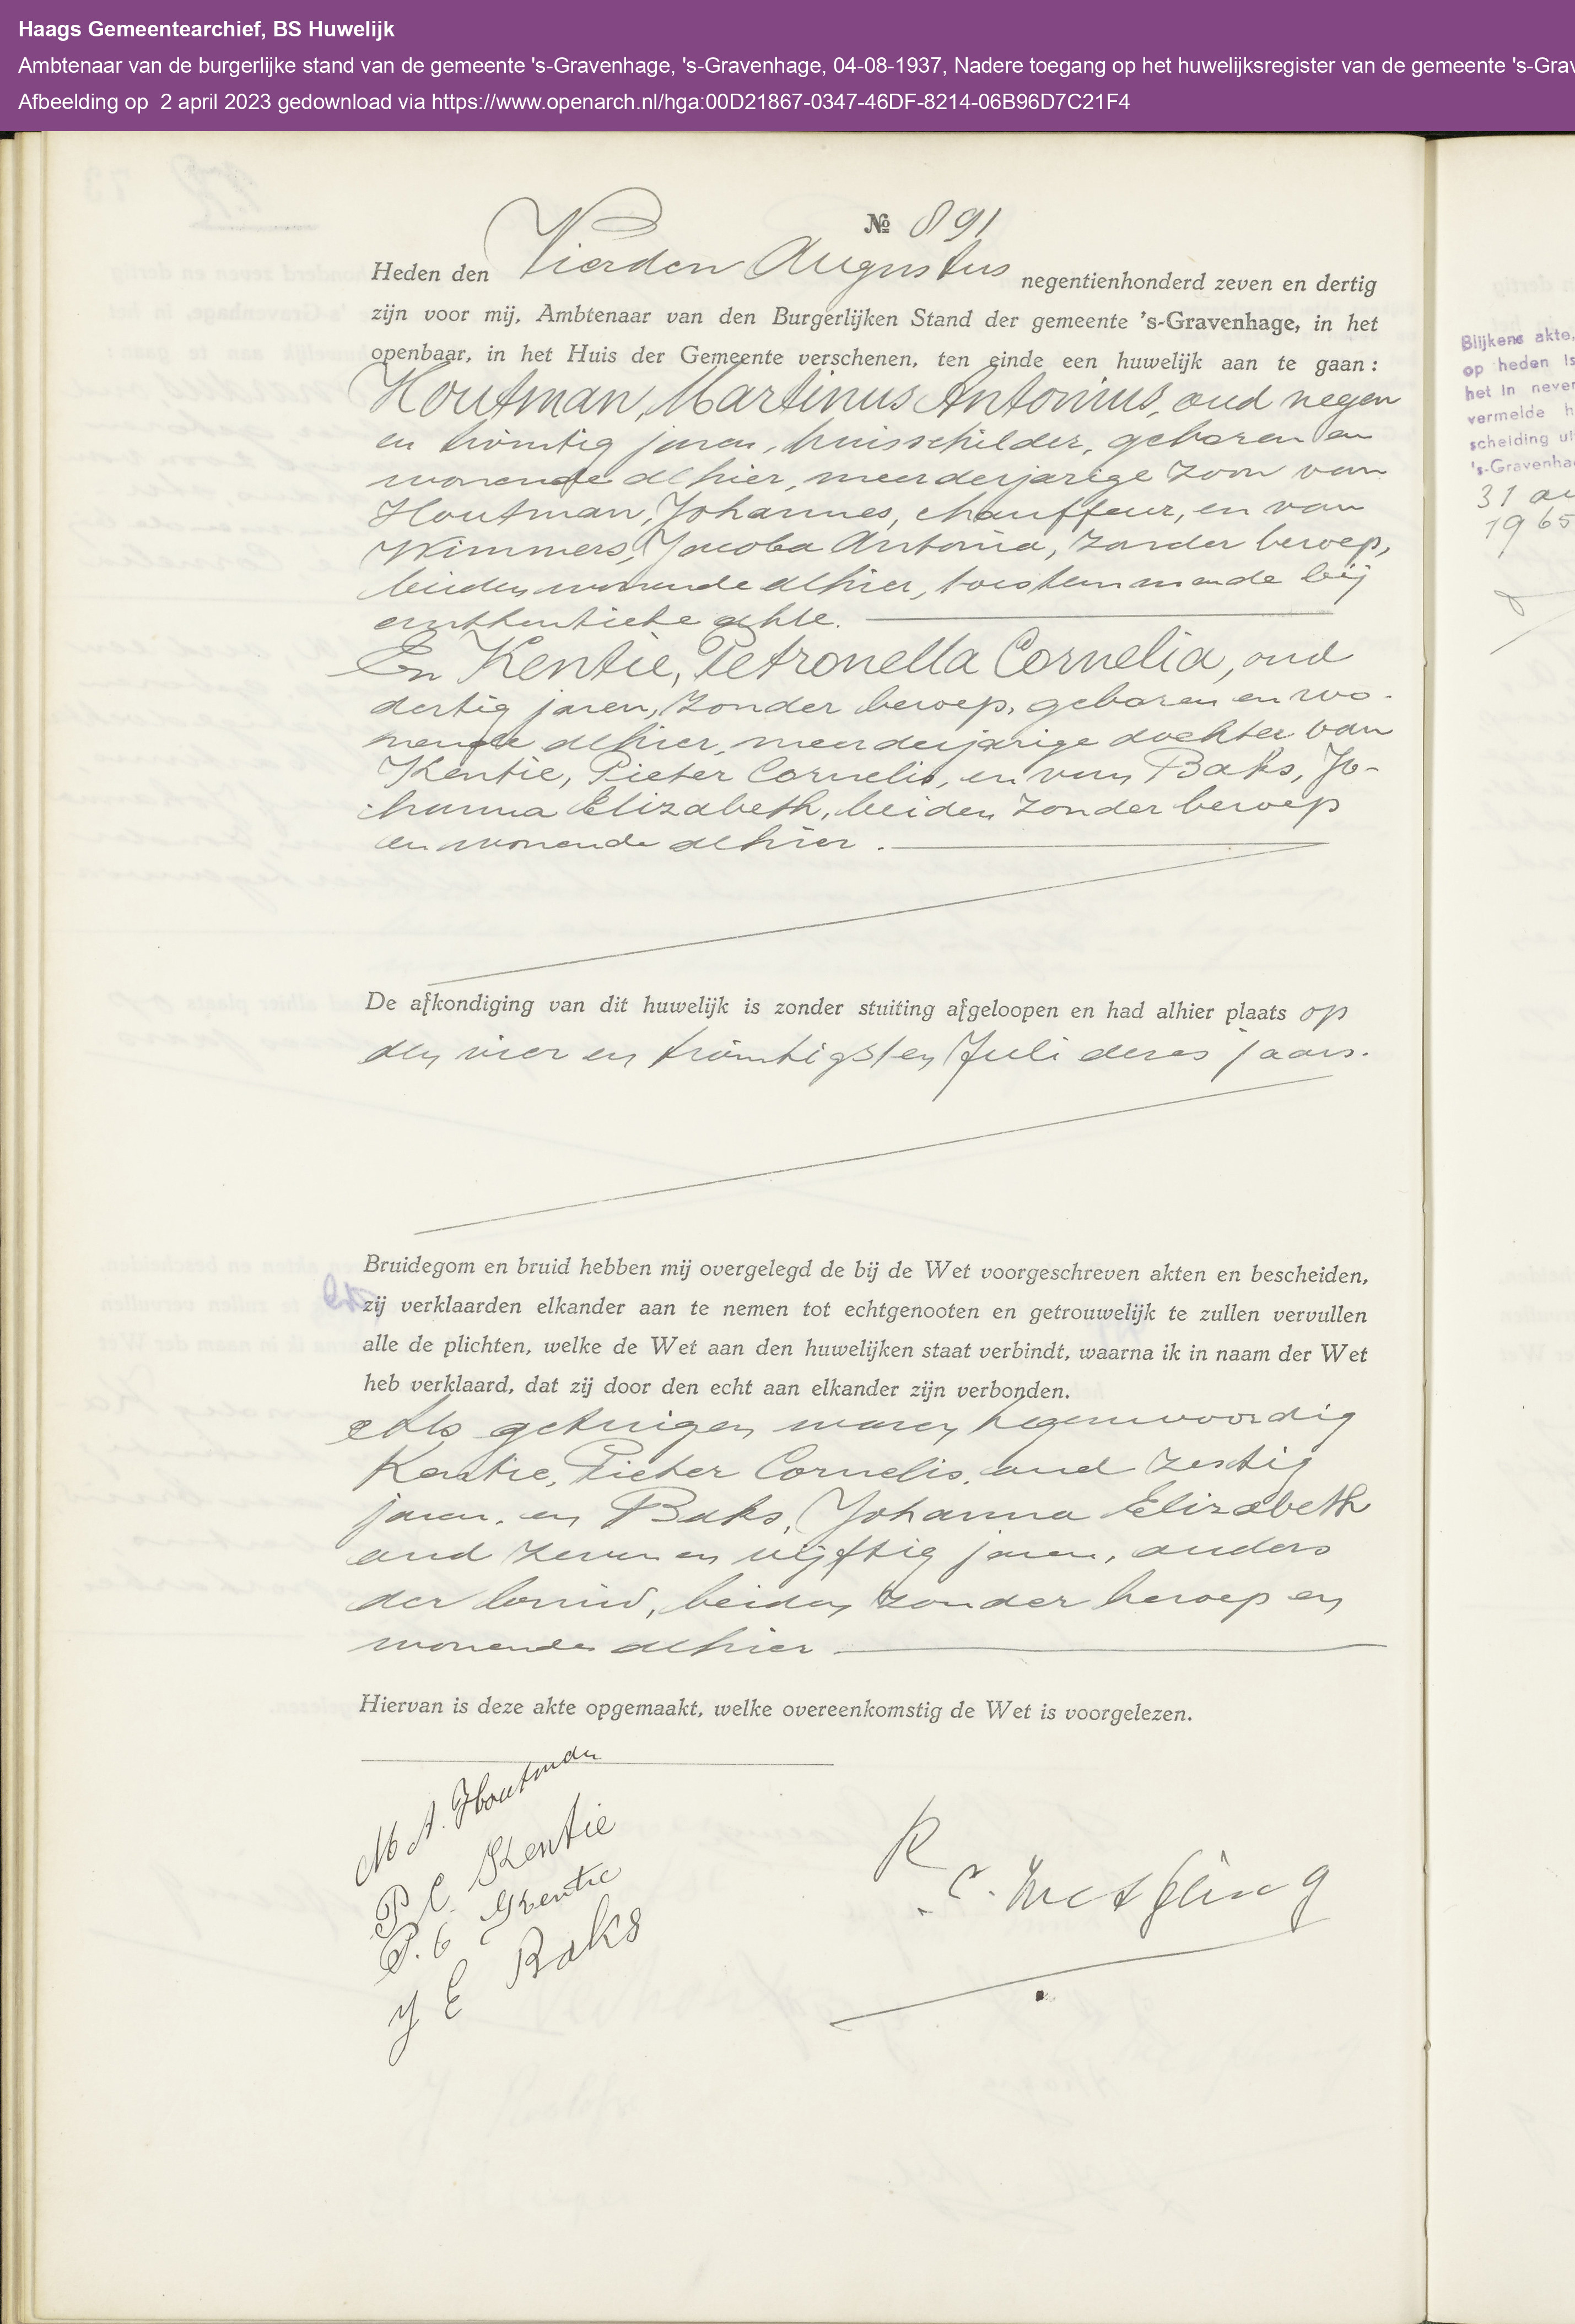 Haags Gemeentearchief, BS Huwelijk
Ambtenaar van de burgerlijke stand van de gemeente 's-Gravenhage, 's-Gravenhage, 04-08-1937, Nadere toegang op het huwelijksregister van de gemeente 's-Grav
Afbeelding op 2 april 2023 gedownload via https://www.openarch.nl/hga:00D21867-0347-46DF-8214-06B96D7C21F4
№ 891
Heden den Vierden Augustus negentienhonderd zeven en dertig
zijn voor mij, Ambtenaar van den Burgerlijken Stand der gemeente 's-Gravenhage, in het
openbaar, in het Huis der Gemeente verschenen, ten einde een huwelijk aan te gaan:
Houtman, Martinus Antonius, oud negen
en twintig jaren, huisschilder, geboren en
wonende alhier, meerderjarige zoon van
Houtman, Johannes, chauffeur, en van
Wimmers, Jacoba Antonia, zonder beroep,
beiden wonende alhier, toestemmende bij
authentieke akte.
En Kentie, Petronella Cornelia, oud
dertig jaren, zonder beroep, geboren en wo-
nende alhier, meerderjarige dochter van
Kentie, Pieter Cornelis, en van Baks, Jo-
hanna Elizabeth, beiden zonder beroep
en wonende alhier.
De afkondiging van dit huwelijk is zonder stuiting afgeloopen en had alhier plaats op
den vier en twintigsten Juli dezes jaars.
Bruidegom en bruid hebben mij overgelegd de bij de Wet voorgeschreven akten en bescheiden,
zij verklaarden elkander aan te nemen tot echtgenooten en getrouwelijk te zullen vervullen
alle de plichten, welke de Wet aan den huwelijken staat verbindt, waarna ik in naam der Wet
heb verklaard, dat zij door den echt aan elkander zijn verbonden.
Als getuigen waren tegenwoordig
Kentie, Pieter Cornelis, oud zestig
jaren, en Baks, Johanna Elizabeth
oud zeven en vijftig jaren, ouders
der bruid, beiden zonder beroep en
wonende alhier
Hiervan is deze akte opgemaakt, welke overeenkomstig de Wet is voorgelezen.
M A. Houtman
P C. Kentie
P. C Kentie
J E Baks
Blijkens akte,
op heden is
het in never
vermelde h
scheiding ui
's-Gravenha
31 au
1965